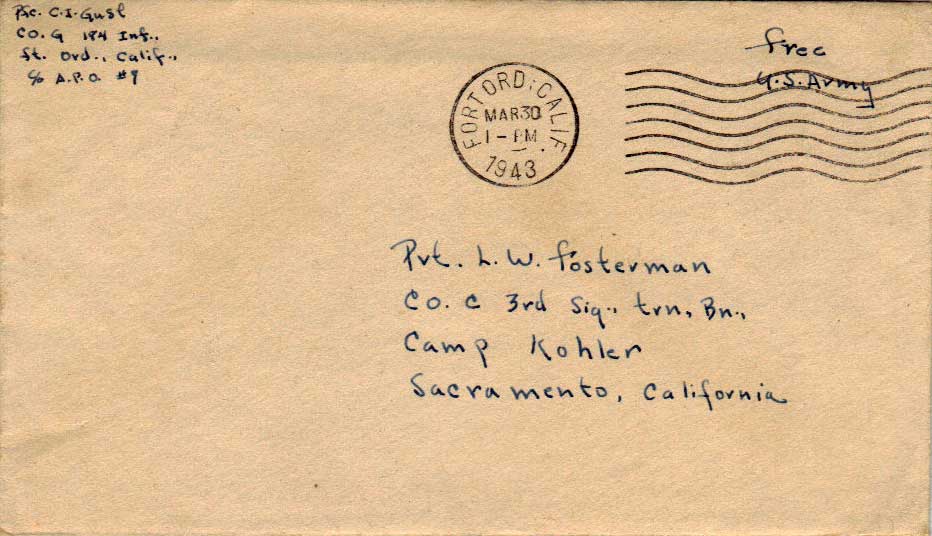 Pfc. C.I. Gusl
Co. G 184 Inf.,
Ft. Ord., Calif.,
c/o A.P.O. #7
free
U.S. Army
FORT ORD, CALIF
MAR 30
1 - PM
1943
Pvt. L. W. Fosterman
Co. C 3rd Sig., trn, Bn.,
Camp Kohler
Sacramento, California